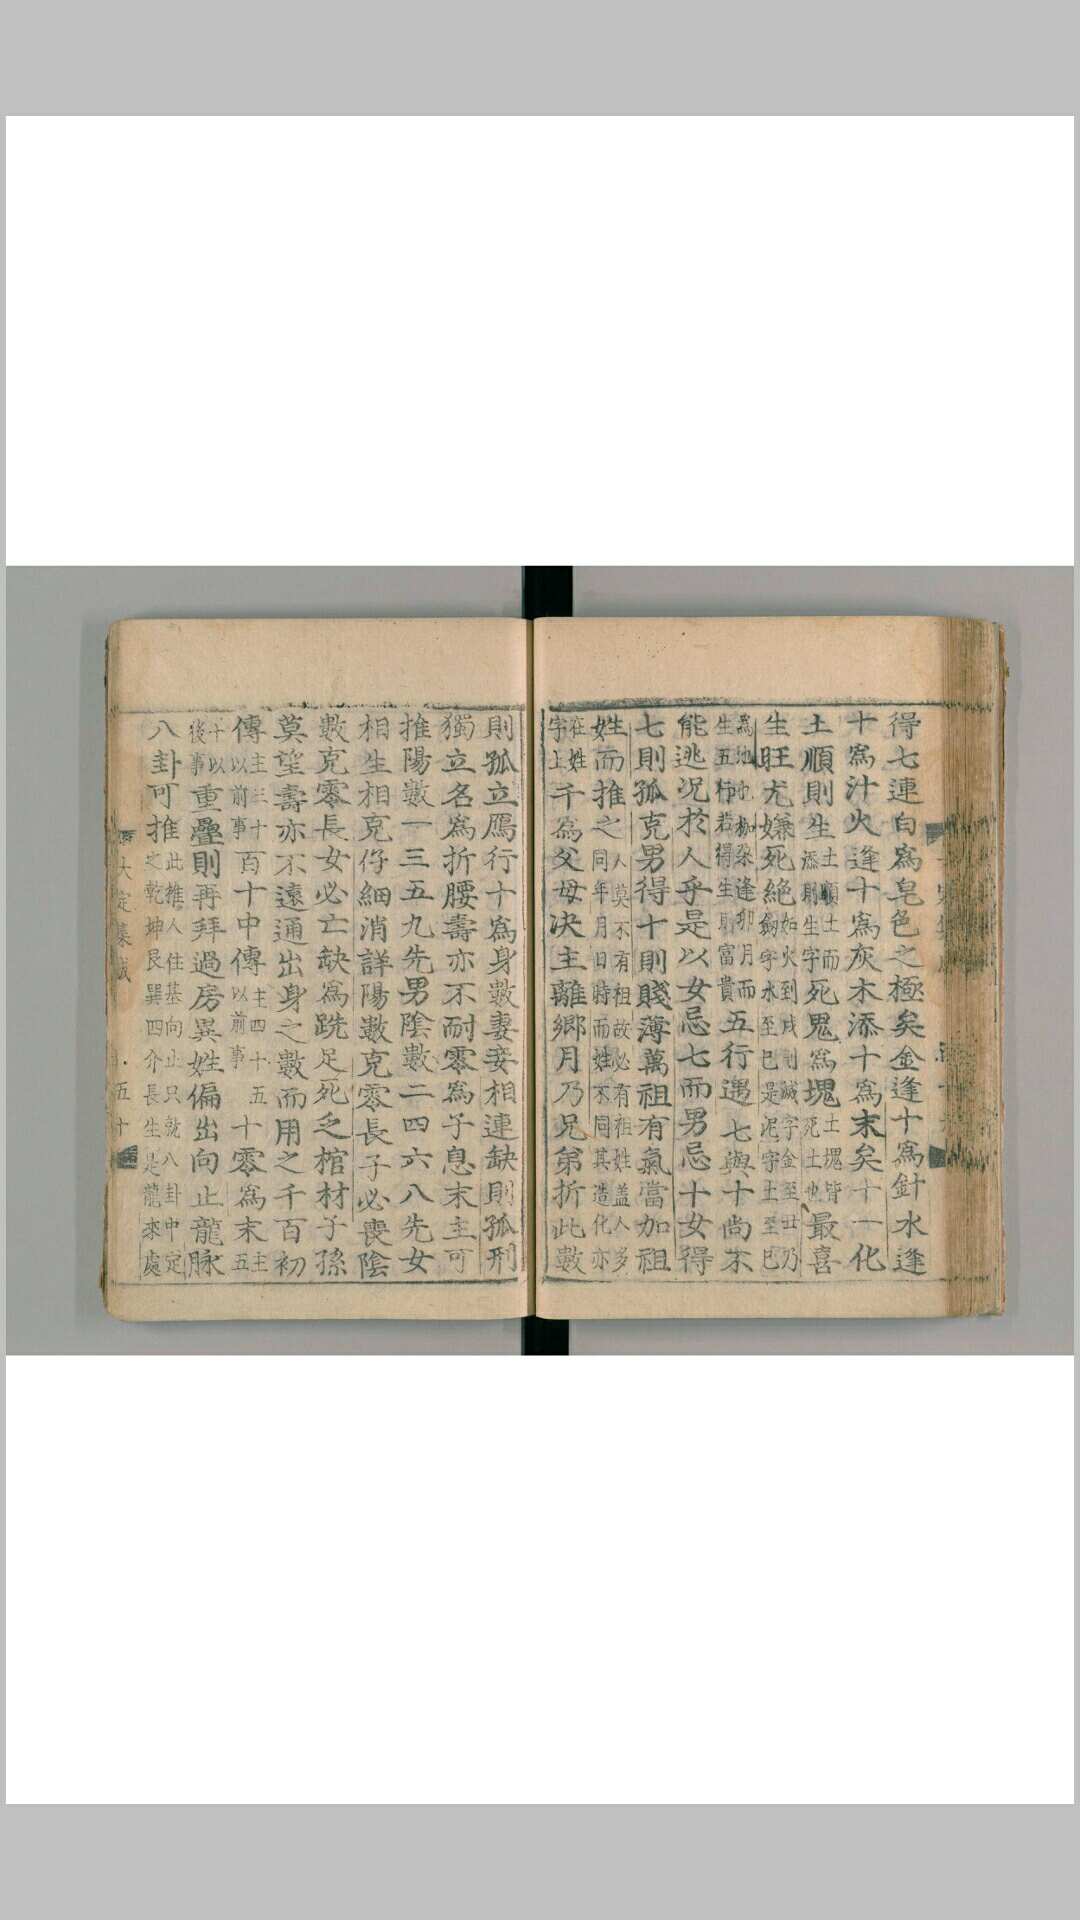 得七連白為皂色之極矣金逢十為針水逢
十為汁火逢十為灰木添十為末矣十一化
土順則生土順土而死鬼為塊土塊皆最喜
添則生字死土也
生旺尤嫌死絶如火到戌則滅字金至丑乃
鈎字水至巳是泥字土至巳
為池也柳朶逢卯月而五行遇七與十尚不
生五行若得生則富貴
能逃况於人乎是以女忌七而男忌十女得
七則孤克男得十則賤薄萬祖有氣當加祖
姓而推之人莫不有祖故必有祖姓盖人多
同年月日時而姓不同其造化亦
在姓字上千為父母决主離鄉月乃兄弟折此數
則孤立鴈行十為身數妻妾相連缺則孤刑
獨立名為折腰壽亦不耐零為子息末主可
推陽數一三五九先男陰數二四六八先女
相生相克仔細消詳陽數克零長子必喪陰
數克零長女必亡缺為跣足死乏棺材子孫
莫望壽亦不遠通出身之數而用之千百初
傳主三十百十中傳主四十五十零為末主
以前事以前事五
十以後事重疊則再拜過房異姓偏出向止龍脉
八卦可推此推人住基向止只就八卦中定
之乾坤艮巽四介長生是龍來處
大定集成
五十